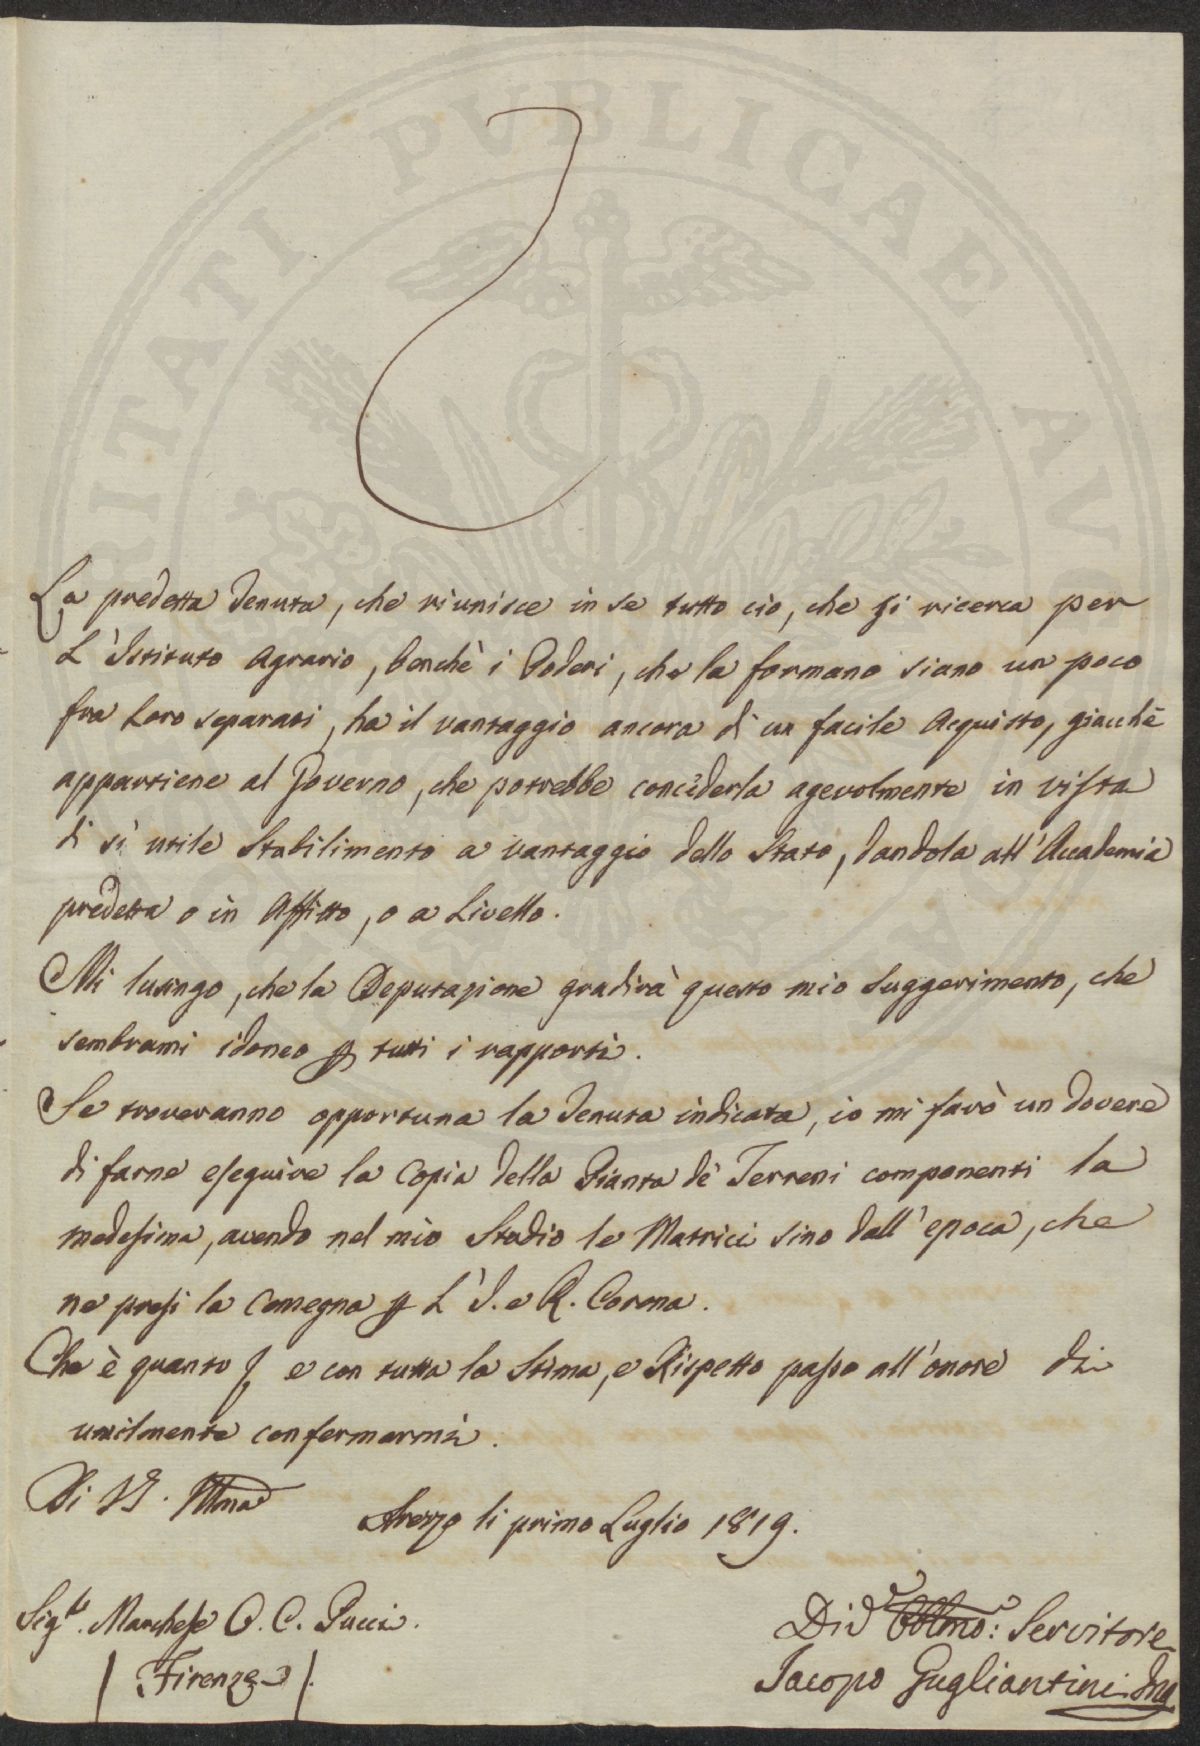 PVBLICAE
La predetta Tenuta, che riunisce in se tutto ciò, che si ricerca per
L'Istituto Agrario, benchè i Poderi, che la formano siano un poco
fra Loro separati, ha il vantaggio ancora di un facile Acquisto, giacchè
appartiene al Governo, che potrebbe concederla agevolmente in vista
di sì utile Stabilimento a vantaggio dello Stato, dandola all'Accademia
predetta o in Affitto, o a Livello.
Mi lusingo, che la Deputazione gradirà questo mio suggerimento, che
sembrami idoneo p tutti i rapporti.
Se troveranno opportuna la Tenuta indicata, io mi farò un dovere
di farne eseguire la Copia della Pianta de' Terreni componenti la
medesima, avendo nel mio Studio le Matrici sino dall'epoca, che
ne presi la Consegna p L'I. e R. Corona.
Che è quanto e con tutta la Stima, e Rispetto passo all'onore di
umilmente confermarmi.
Di V. Illma
Arezzo li primo Luglio 1819.
Sigre. Marchese O. C. Pucci.
Firenze
Dio Obblmo: Servitore
Jacopo Gugliantini Ing